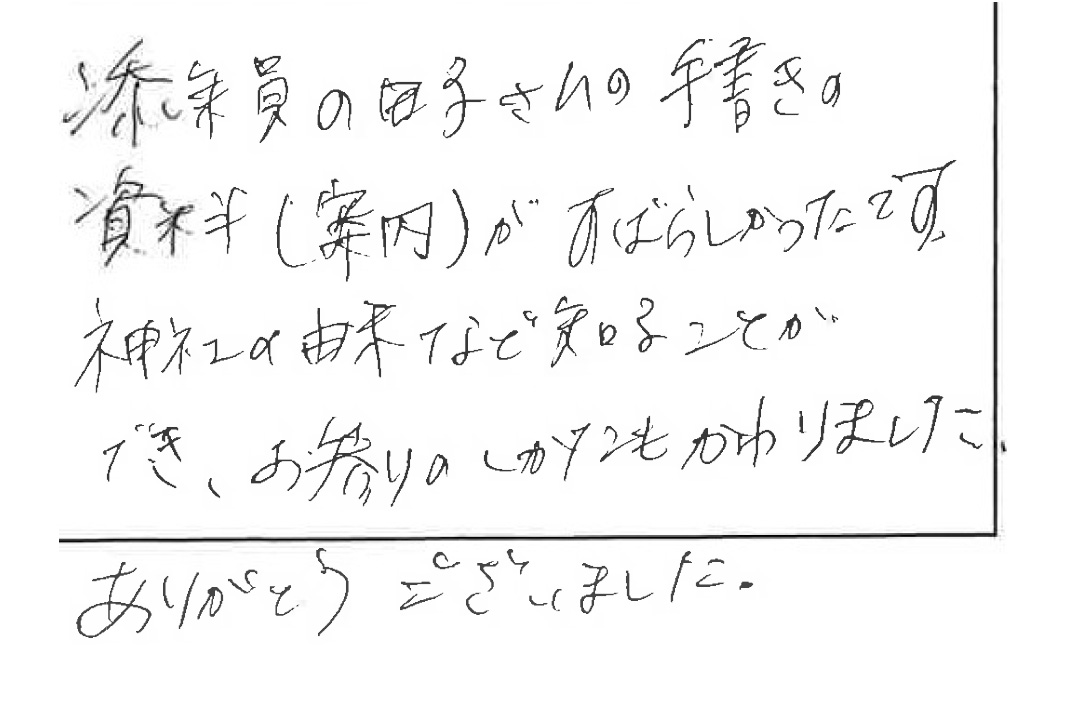 添乗員の田子さんの手書きの
資料(案内)がすばらしかったです
神社の由来など知ることが
でき、お参りのしかたもかわりました.
ありがとうございました.